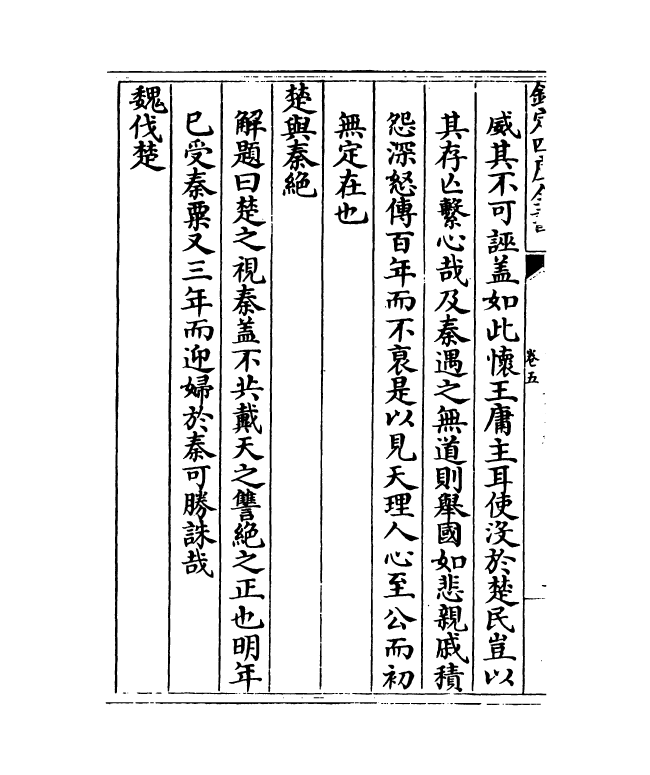 欽定四庫全書
卷五
威其不可誣盖如此懷王庸主耳使沒於楚民豈以
其存亡繫心哉及秦遇之無道則舉國如悲親戚積
怨深怒傳百年而不衰是以見天理人心至公而初
無定在也
楚與秦絶
解題曰楚之視秦盖不共戴天之讐絶之正也明年
已受秦粟又三年而迎婦於秦可勝誅哉
魏伐楚